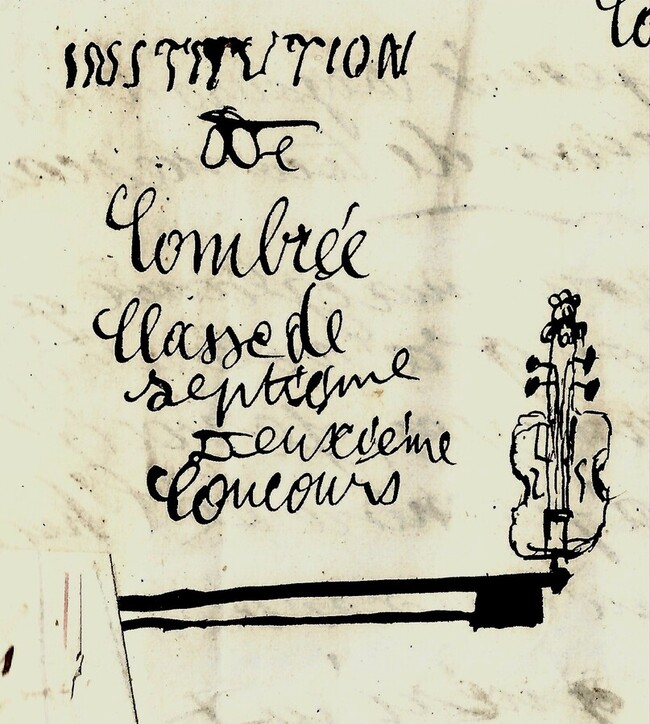 INSTITUTION
De
Combrée
Classe de
septième
Deuxième
Concours